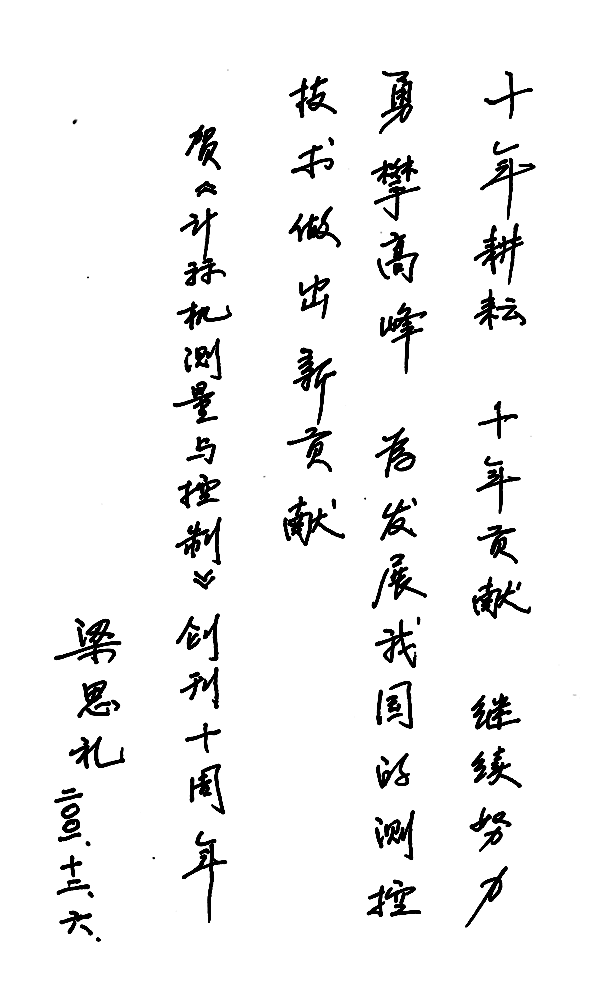 十年耕耘 十年贡献 继续努力
勇攀高峰 为发展我国的测控
技术做出新贡献
贺《计算机测量与控制》创刊十周年
梁思礼
二〇〇二、十二、六、